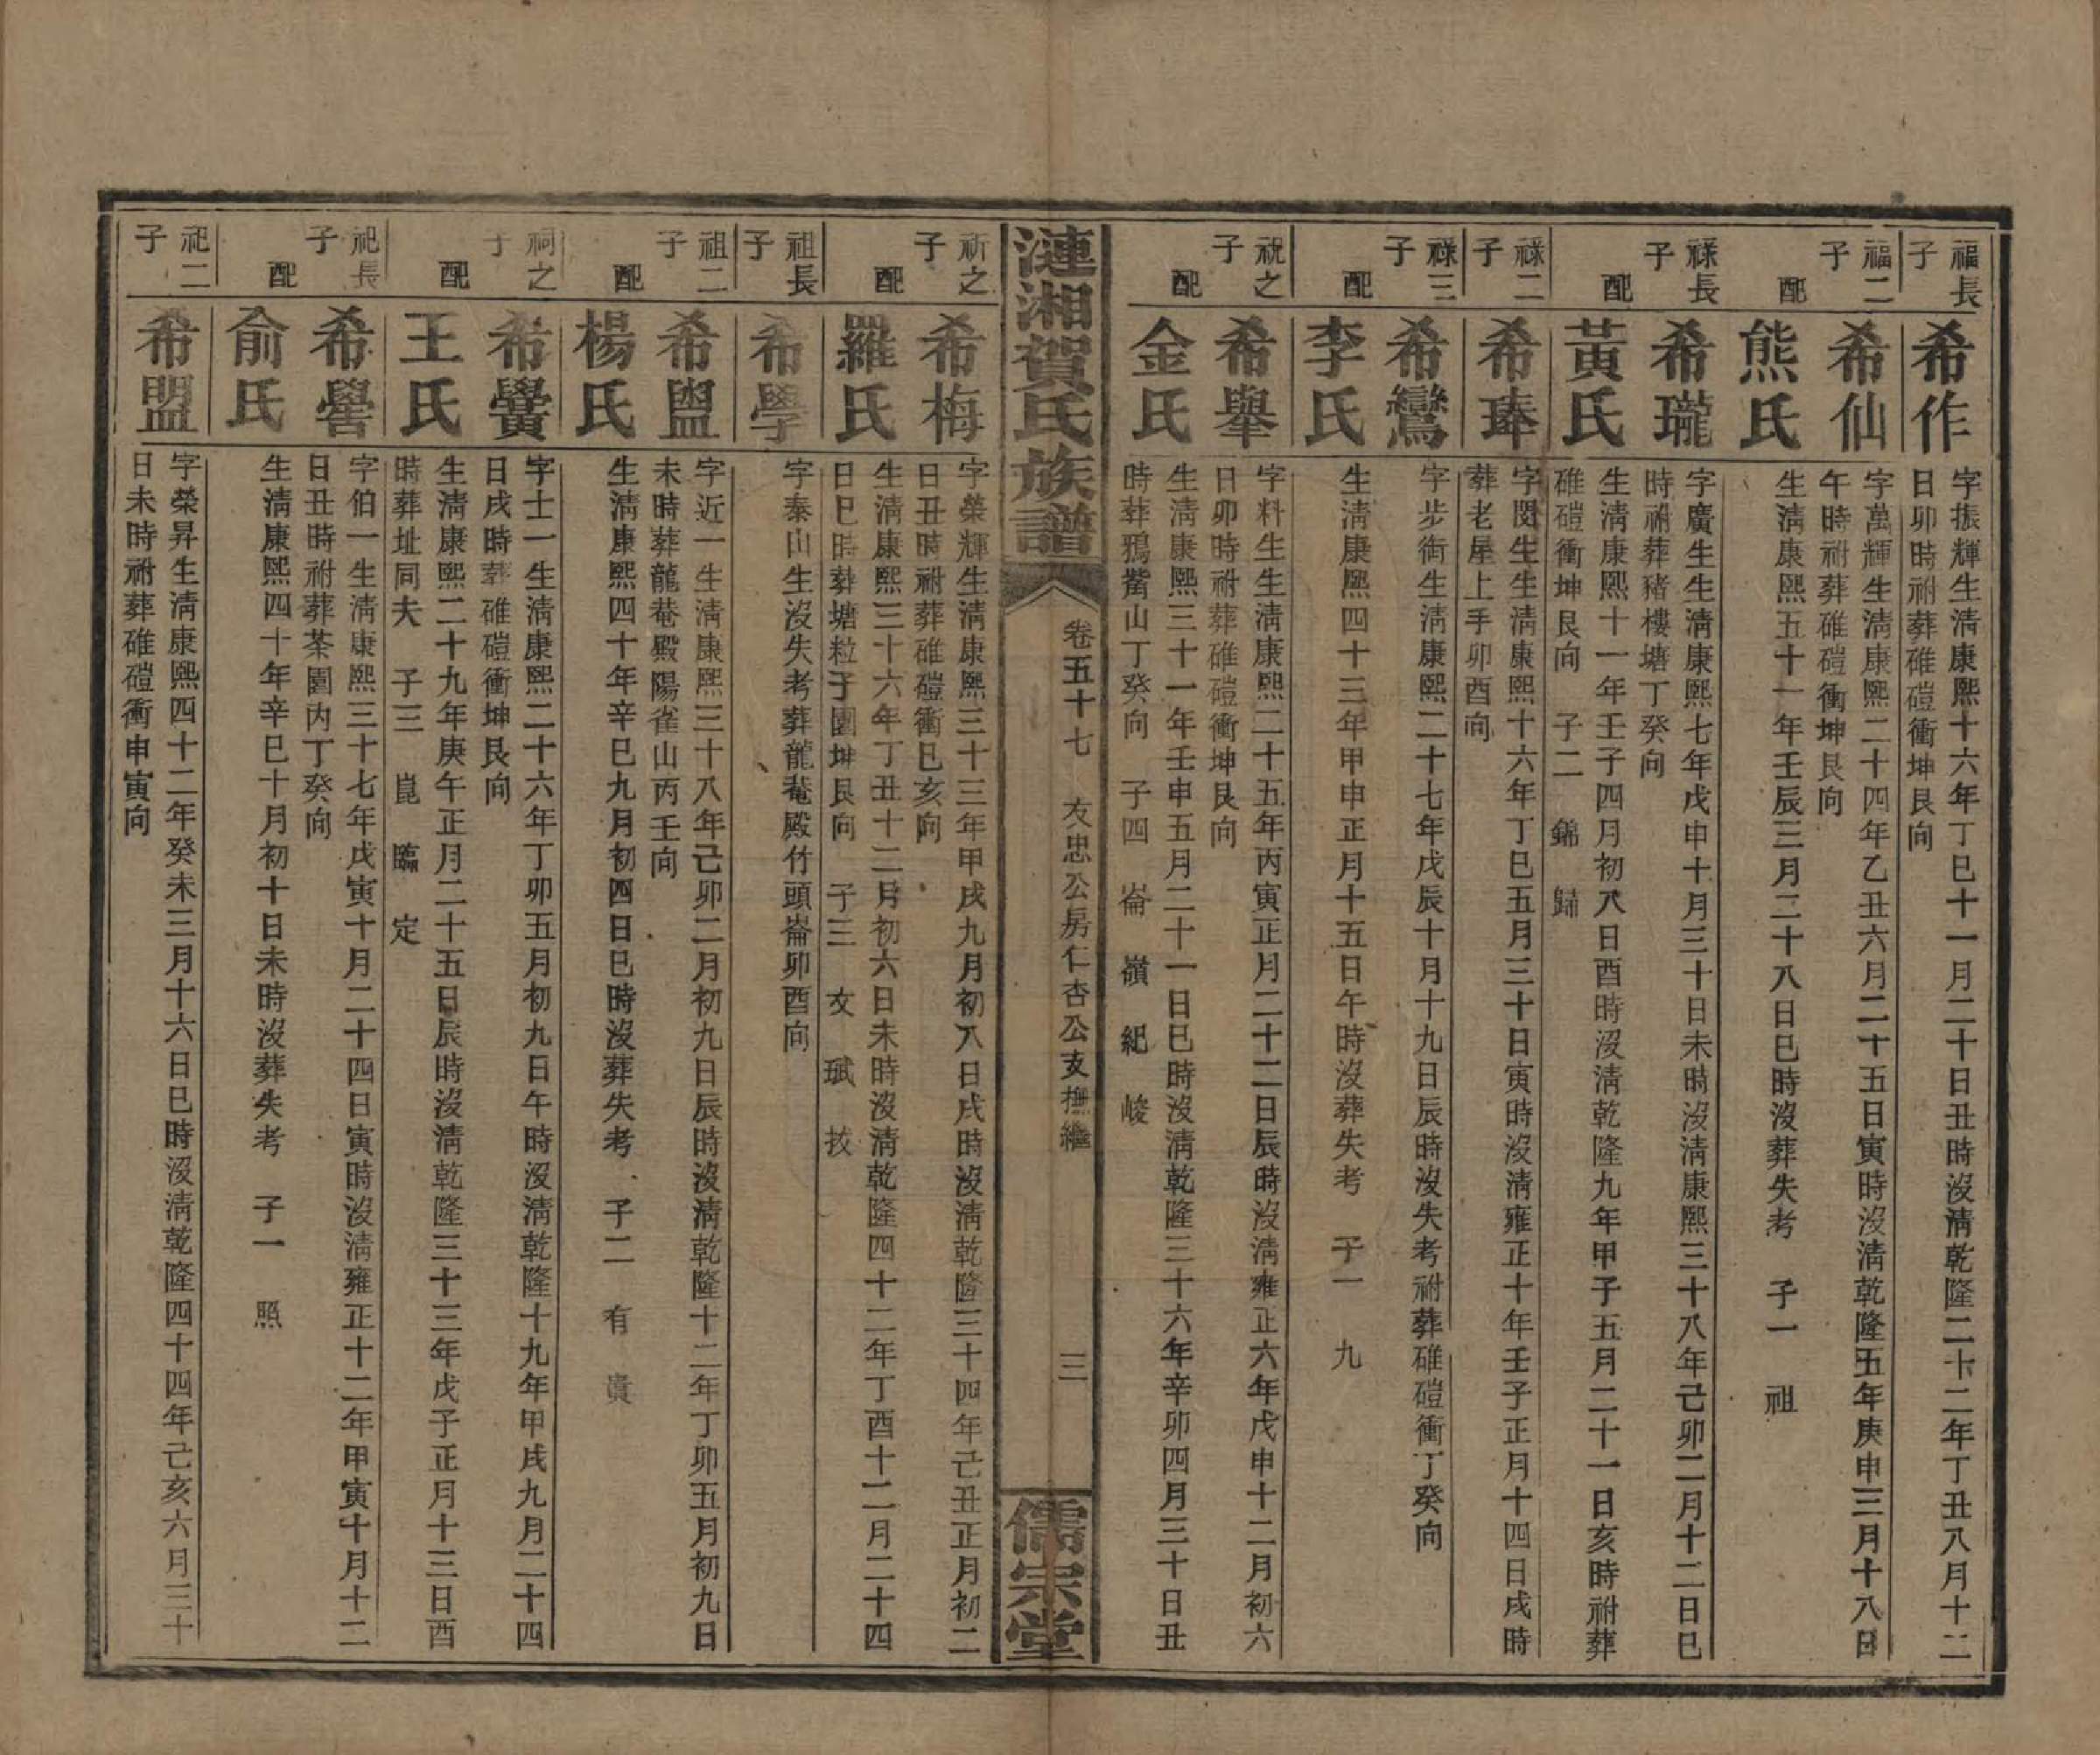 福長子
希作
字振輝生清康熙十六年丁巳十一月二十日丑時沒清乾隆二十二年丁丑八月十二
日卯時祔葬碓磑衝坤艮向
福二子
希仙
字萬輝生清康熙二十四年乙丑六月二十五日寅時沒清乾隆五年庚申三月十八日
午時祔葬碓磑衝坤艮向
配
熊氏
生清康熙五十一年壬辰三月二十八日巳時沒葬失考 子一 祖
祿長子
希瓏
字廣生生清康熙七年戊申十月三十日未時沒清康熙三十八年己卯二月十二日巳
時祔葬豬樓塘丁癸向
配
黃氏
生清康熙十一年壬子四月初八日酉時沒清乾隆九年甲子五月二十一日亥時祔葬
碓磑衝坤艮向 子二 錦 歸
祿二子
希琫
字閔生生清康熙十六年丁巳五月三十日寅時沒清雍正十年壬子正月十四日戌時
葬老屋上手卯酉向
祿三子
希鸞
字步衡生清康熙二十七年戊辰十月十九日辰時沒失考祔葬碓磑衝丁癸向
配
李氏
生清康熙四十三年甲申正月十五日午時沒葬失考 子一 九
祝之子
希舉
字料生生清康熙二十五年丙寅正月二十二日辰時沒清雍正六年戊申十二月初六
日卯時祔葬碓磑衝坤艮向
配
金氏
生清康熙三十一年壬申五月二十一日巳時沒清乾隆三十六年辛卯四月三十日丑
時葬鴉觜山丁癸向 子四 崙 嶺 紀 峻
漣湘賀氏族譜
卷五十七 友忠公房仁杏公支撫繼
三
儒宗堂
祈之子
希梅
字榮輝生清康熙三十三年甲戌九月初八日戌時沒清乾隆三十四年己丑正月初二
日丑時祔葬碓磑衝巳亥向
配
羅氏
生清康熙三十六年丁丑十二月初六日未時沒清乾隆四十二年丁酉十二月二十四
日巳時葬塘粒子園坤艮向 子三 女 珷 㧞
祖長子
希學
字泰山生沒失考葬龍菴殿竹頭崙卯酉向
祖二子
希盥
字近一生清康熙三十八年己卯二月初九日辰時沒清乾隆十二年丁卯五月初九日
未時葬龍菴殿陽雀山丙壬向
配
楊氏
生清康熙四十年辛巳九月初四日巳時沒葬失考 子二 有 貴
祠之子
希黌
字士一生清康熙二十六年丁卯五月初九日午時沒清乾隆十九年甲戌九月二十四
日戌時葬碓磑衝坤艮向
配
王氏
生清康熙二十九年庚午正月二十五日辰時沒清乾隆三十三年戊子正月十三日酉
時葬址同夫 子三 崑 臨 定
祀長子
希嚳
字伯一生清康熙三十七年戊寅十月二十四日寅時沒清雍正十二年甲寅十月十二
日丑時祔葬茶園內丁癸向
配
俞氏
生清康熙四十年辛巳十月初十日未時沒葬失考 子一 照
祀二子
希盟
字榮昇生清康熙四十二年癸未三月十六日巳時沒清乾隆四十四年己亥六月三十
日未時祔葬碓磑衝申寅向